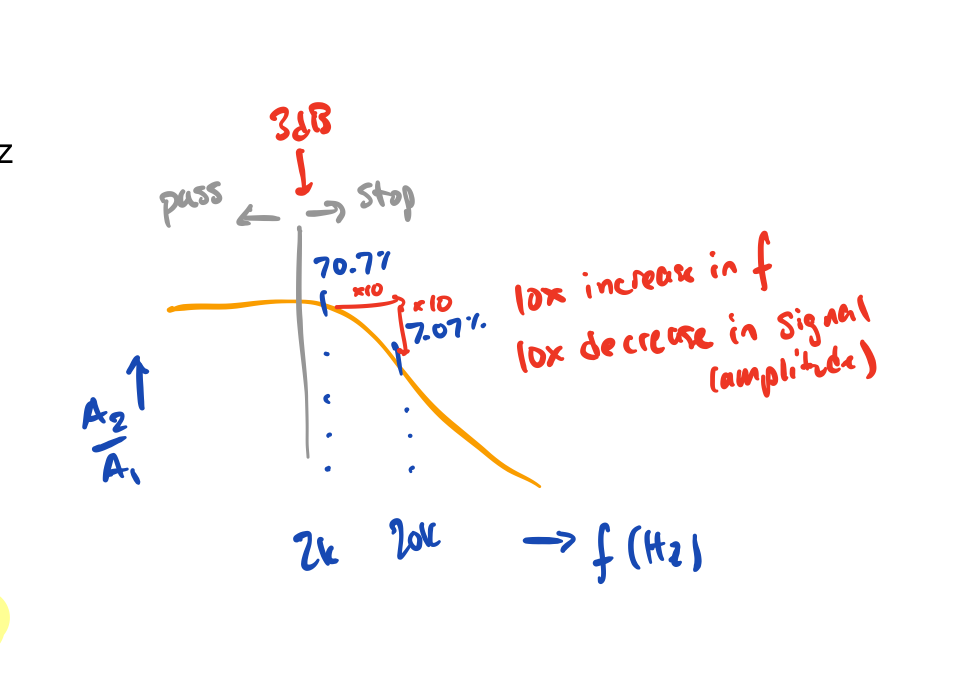 z
3dB
pass
stop
70.7%
x10
x10
7.07%
10x increase in f
10x decrease in signal
(amplitude)
A2
A1
2k
20k
f (Hz)